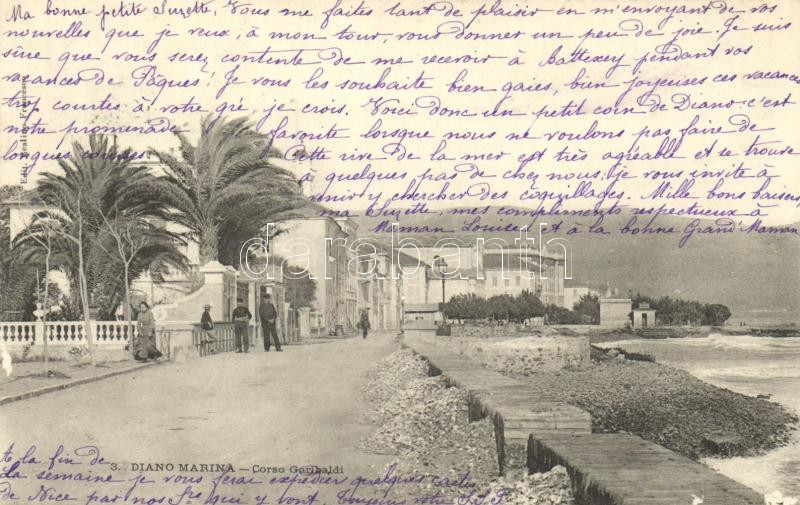 Ma bonne petite Suzette, Vous me faites tant de plaisir en m'envoyant de vos
nouvelles que je veux, à mon tour, vous donner un peu de joie. Je suis
sûre que vous serez contente de me recevoir à Battexey pendant vos
vacances de Pâques! Je vous les souhaite bien gaies, bien joyeuses ces vacances
trop courtes à votre gré, je crois. Voici donc un petit coin de Diano - c'est
notre promenade favorite lorsque nous ne voulons pas faire de
longues courses. Cette rive de la mer est très agréable et se trouve
à quelques pas de chez nous, je vous invite à
venir y chercher des coquillages. Mille bons baisers
ma Suzette, mes compliments respectueux à
Maman Louise et à la bonne Grand'Maman
Edit.
darabanth.com
3. DIANO MARINA — Corso Garibaldi
A la fin de
la semaine je vous ferai expédier quelques cartes
de Nice par nos Srs qui y vont. Toujours votre